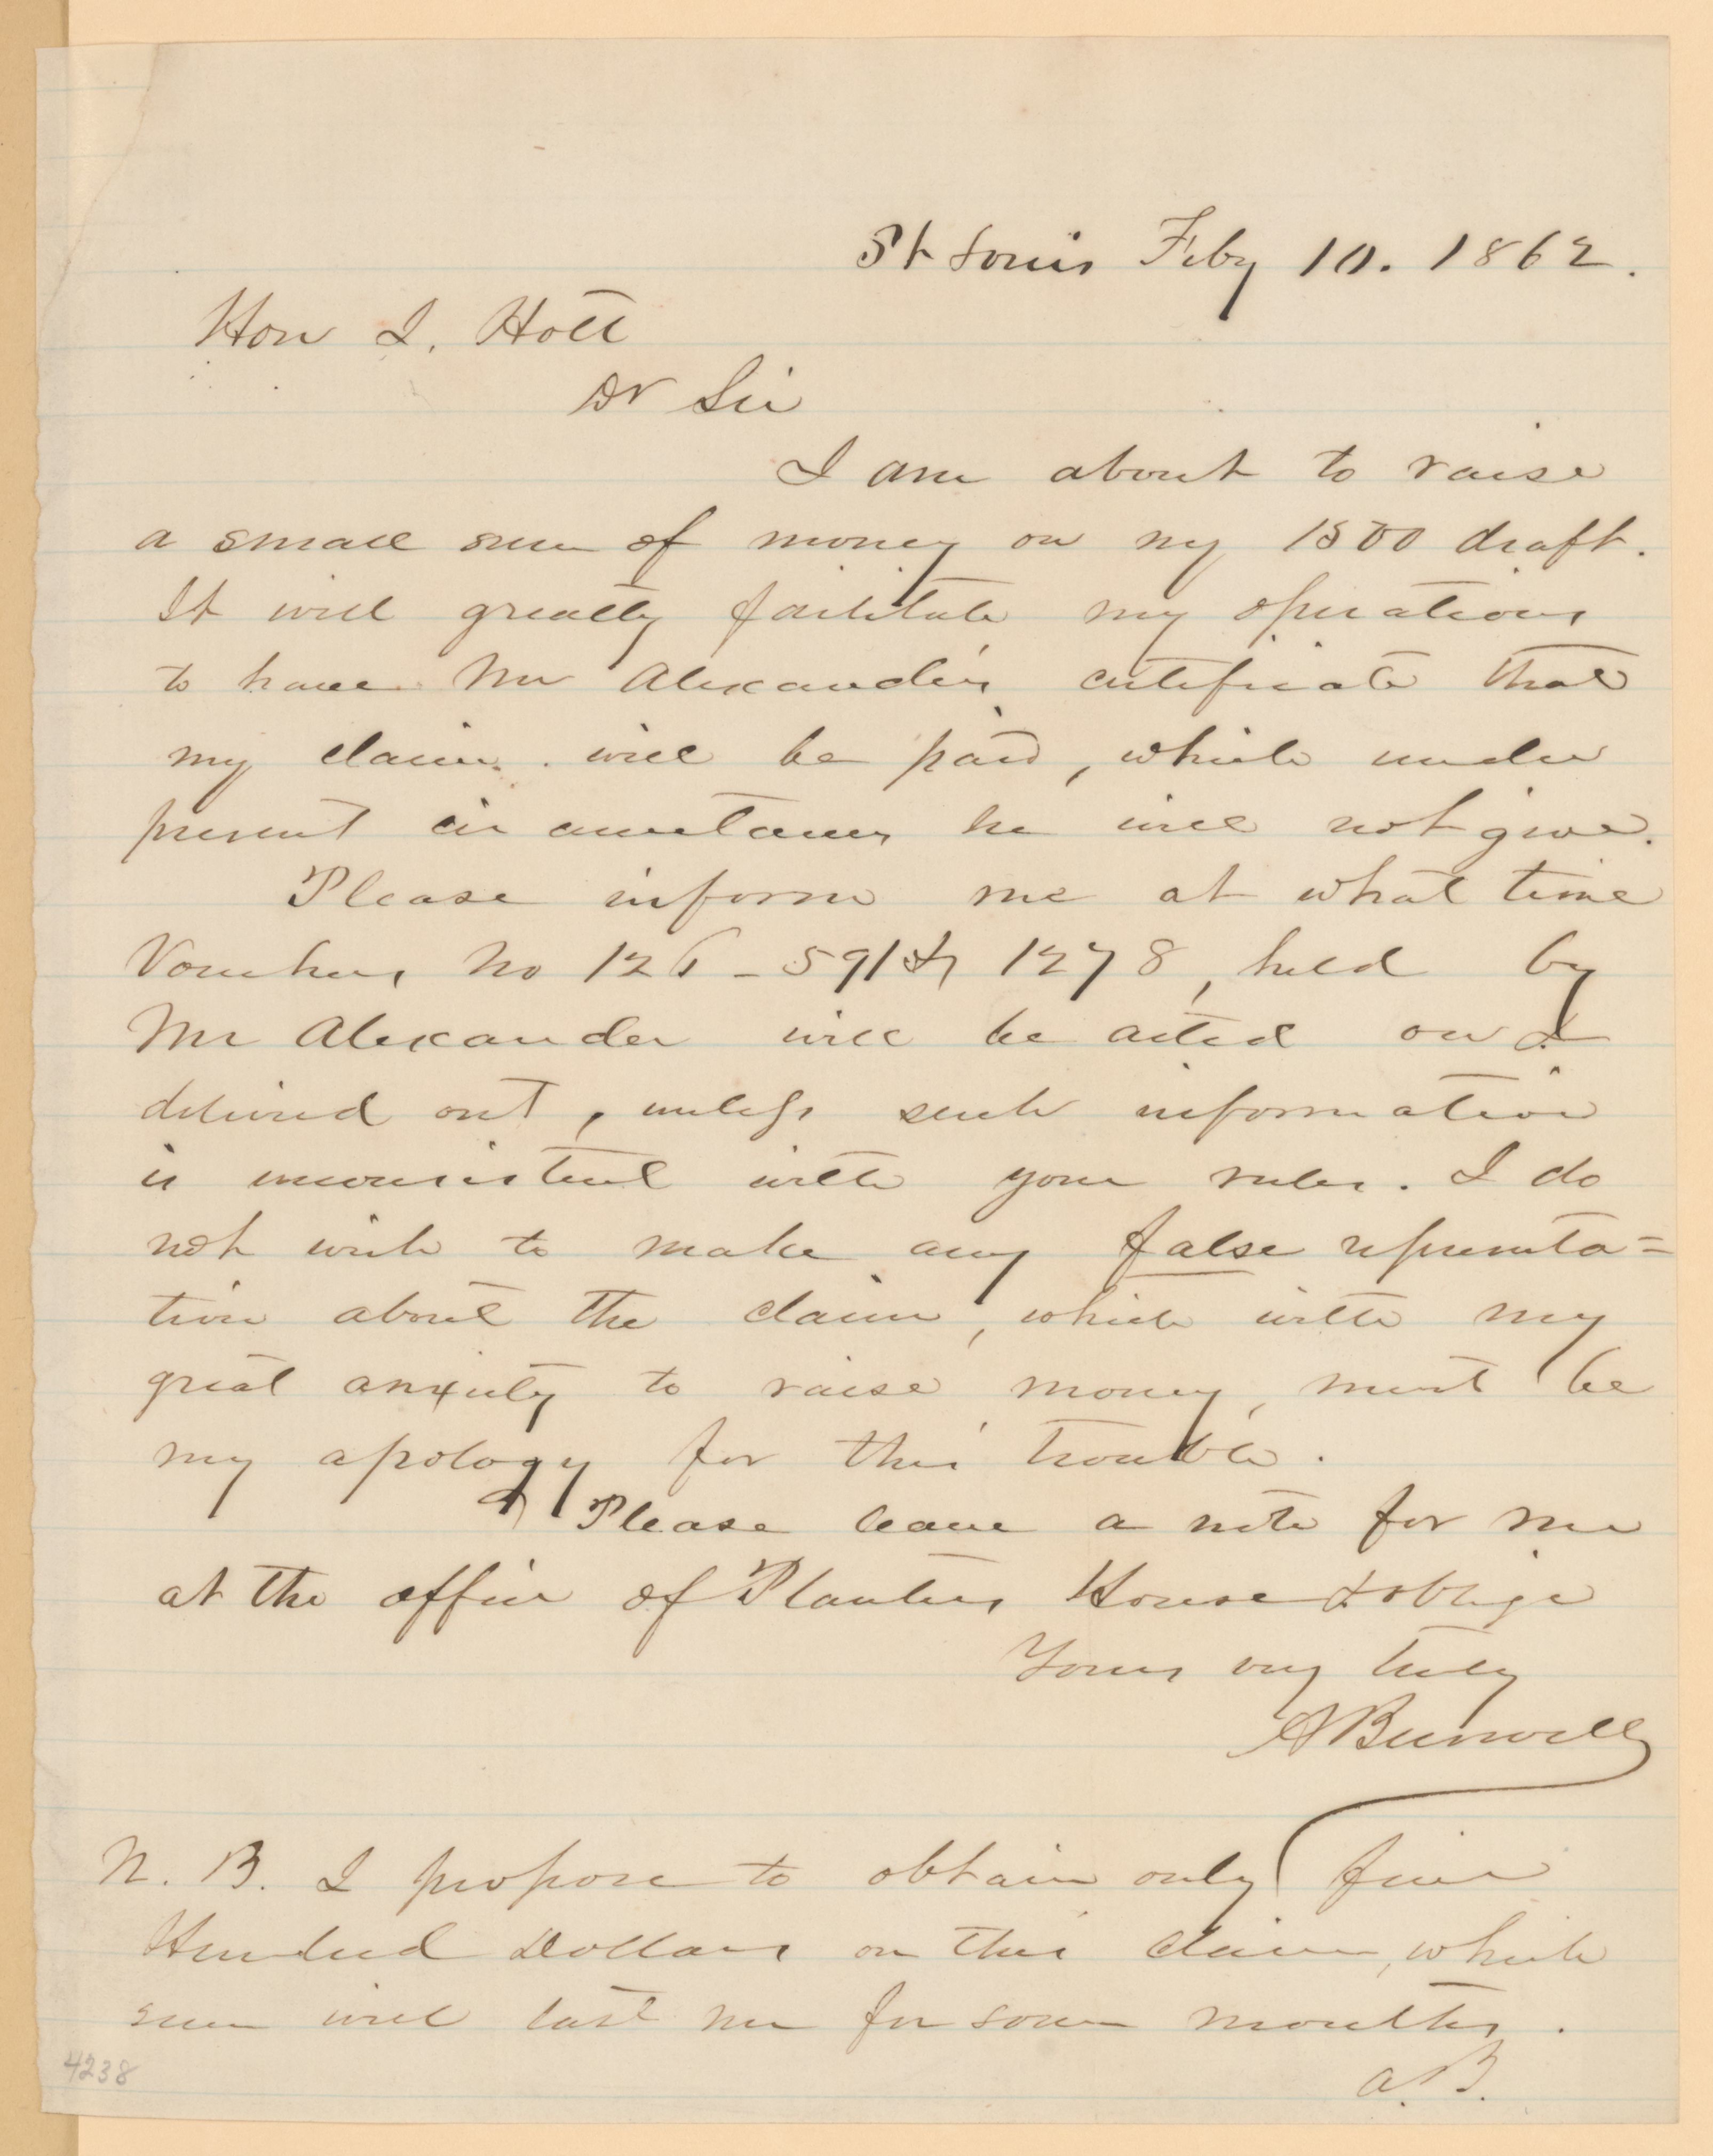 St Louis Feby 10. 1862.
Hon J. Holt
Dr Sir
I am about to raise
a small sum of money on my 1500 draft.
It will greatly facilitate my operations
to have Mr Alexander's certificate that
my claim will be paid, which under
present circumstances he will not give.
Please inform me at what time
Vouchers No 126 - 591 & 1278, held by
Mr Alexander will be acted on &
delivered out, unless such information
is inconsistent with your rules. I do
not wish to make any false representa=
tion about the claim, which with my
great anxiety to raise money, must be
my apology for this trouble.
& Please leave a note for me
at the office of Planters House & oblige
Yours very truly
A Burwell
N. B. I propose to obtain only five
Hundred Dollars on this claim, which
sum will last me for some months.
A. B.
4238